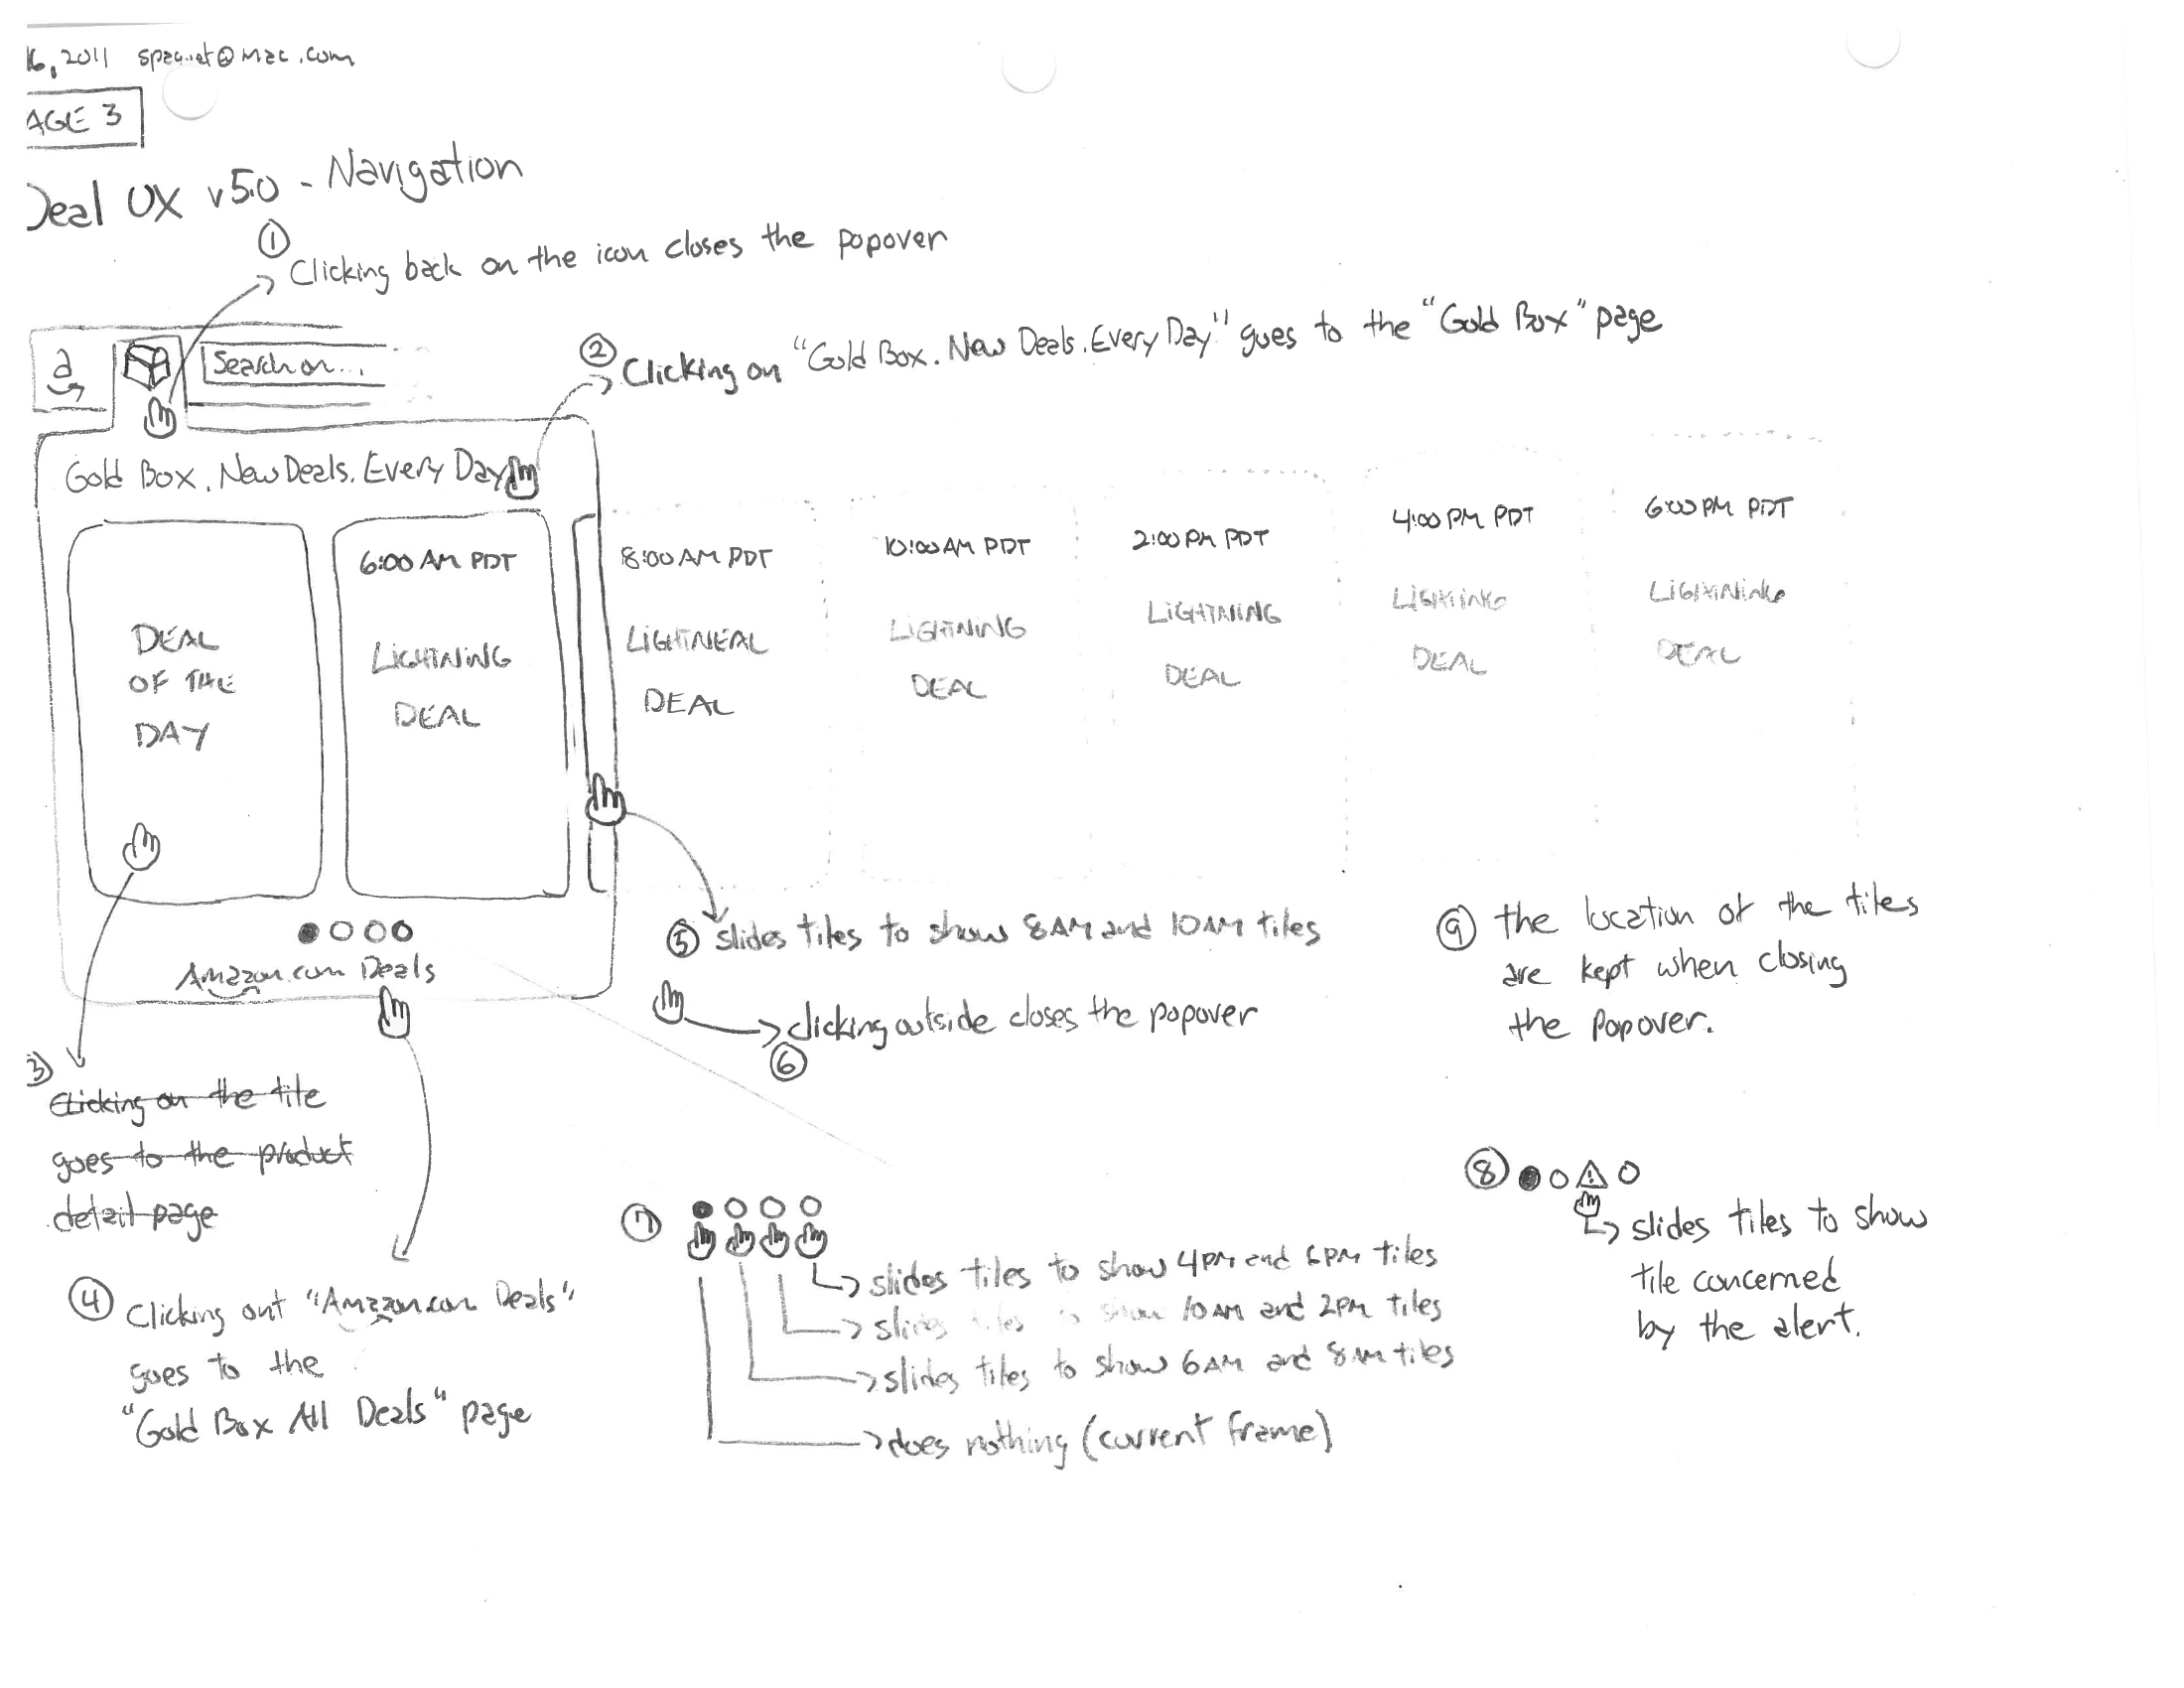 16, 2011 spaquet@mac.com
AGE 3
Deal UX v5.0 - Navigation
① Clicking back on the icon closes the popover
② Clicking on "Gold Box. New Deals. Every Day" goes to the "Gold Box" page
a
Search on...
Gold Box. New Deals. Every Day
DEAL
OF THE
DAY
6:00 AM PDT
LIGHTNING
DEAL
8:00 AM PDT
LIGHTNEAL
DEAL
10:00 AM PDT
LIGHTNING
DEAL
2:00 PM PDT
LIGHTNING
DEAL
4:00 PM PDT
LIGHTING
DEAL
6:00 PM PDT
LIGHTNING
DEAL
Amazon.com Deals
③ Clicking on the tile
goes to the product
detail page
④ Clicking out "Amazon.com Deals"
goes to the
"Gold Box All Deals" page
⑤ slides tiles to show 8AM and 10AM tiles
⑥ clicking outside closes the popover
⑦
slides tiles to show 4PM and 6PM tiles
slides tiles to show 10AM and 2PM tiles
slides tiles to show 6AM and 8AM tiles
does nothing (current frame)
⑧
!
slides tiles to show
tile concerned
by the alert.
⑨ the location of the tiles
are kept when closing
the popover.